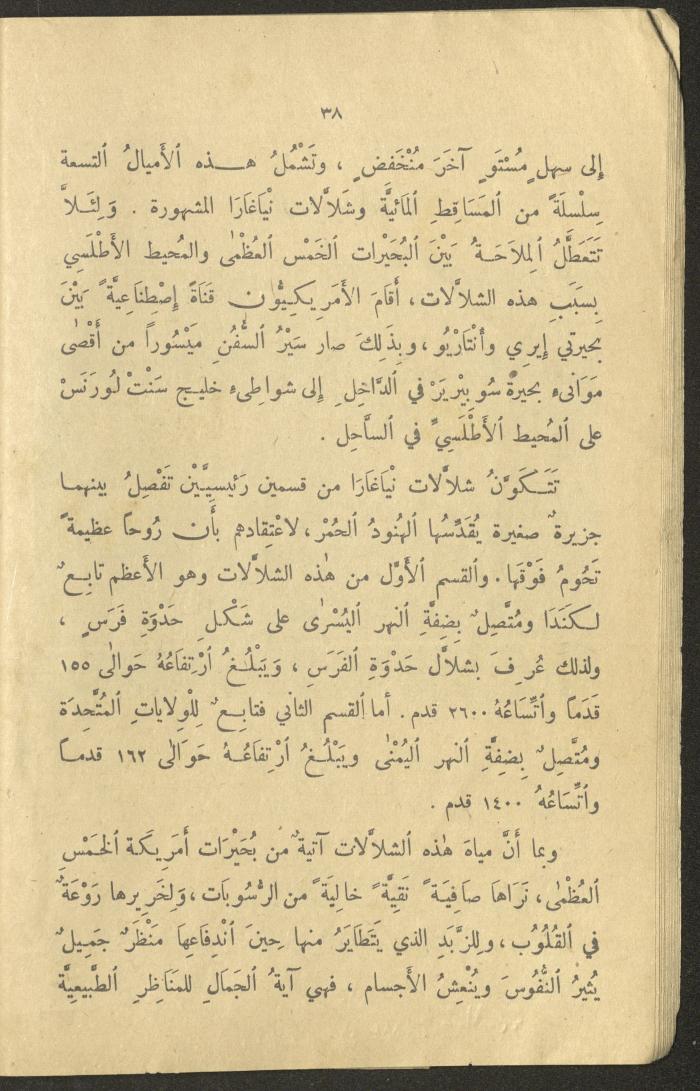 ٣٨
إِلى سهلٍ مُسْتَوٍ آخَرَ مُنْخَفِضٍ ، وتَشْمُلُ هــذه ٱلأَميالُ ٱلتسعة
سِلْسِلَةً من ٱلمَسَاقِطِ ٱلمَائيَّةِ وشَلاَّلات نْيَاغَارَا المشهورة . وَلِئَــلاَّ
تَتَعَطَّلُ ٱلمِلاَحَــةُ بَيْنَ ٱلبُحَيْرات ٱلخَمْس ٱلعُظْمٰى والمُحيط ٱلأَطْلَسِي
بِسَبَبِ هذه الشلاَّلات ، أَقَامَ الأَمَرِيكِيُّون قَنَاةً إِصْطِنَاعيَّةً بَيْنَ
بحيرتي إِيرِي وأَنْتَارْيُو ، وبِذَلِكَ صار سَيْرُ ٱلسُّفُنِ مَيْسُوراً من أَقْصٰى
مَوَانىءِ بحيرةِ سُوبِيْريَرْ في ٱلدَّاخِلِ إِلى شواطىءِ خليـج سَنْتْ لُورَنَسْ
على ٱلمُحيط ٱلأَطْلَسِيِّ في ٱلسـاَّحِل .
تَتَـكَوَّنُ شلاَّلات نْيَاغَارَا من قسمين رَئيسِيَّيْن تَفْصِلُ بينهمـا
جزيرةٌ صغيرة يُقَدِّسُها ٱلهُنودُ ٱلحُمْرْ ، لاعْتِقادهم بأَن رُوحاً عظيمةً
تَحُومُ فَوْقَها . وٱلقسم ٱلأَوَّل من هٰذه الشلاَّلات وهو الأَعظم تابِعٌ
لـكَنَدَا ومُتَّصِلٌ بِضِفَّةِ ٱلنهر ٱليُسْرٰى على شَكْلِ حَدْوَةِ فَرَسٍ ،
ولذلك عُرِفَ بشلاَّل حَدْوَةِ ٱلفَرَسِ ، وَيَبْلُــغُ ٱرْتِفَاعُهُ حَوالٰى ١٥٥
قَدَماً وٱتِّسَاعُهُ ٢٦٠٠ قدم . أما ٱلقسم الثاني فتابِـعٌ لِلْوِلاياتِ ٱلمُتَّحِدَة
ومُتَّصِلٌ بِضِفَّةِ ٱلنهر ٱليُمْنٰى ويَبْلُــغُ ٱرْتِفَاعُــهُ حَوَالٰى ١٦٢ قدمـاً
وٱتِّسَاعُهُ ١٤٠٠ قدم .
وبما أَنَّ مياهَ هٰذه ٱلشلاَّلات آتيةٌ من بُحَيْرَات أَمَرِيكَة ٱلخَمْسِ
ٱلعُظْمٰى ، نَرَاهَا صَافِيَـةً نَقِيَّةً خالِيَةً من الرُّسُوبَات ، وَلِخَرِيرِها رَوْعَةٌ
في ٱلقُلُوُب ، ولِلزَّبَدِ الذي يَتَطَايَرُ منها حِينَ ٱنْدِفَاعِهَا مَنْظَرٌ جَمِيلٌ
يُثِيرُ ٱلنُّفُوسَ ويُنْعِشُ ٱلأَجسام ، فهي آيةُ ٱلجَمَالِ للمَنَاظِرِ ٱلطَّبِيعيَّةِ